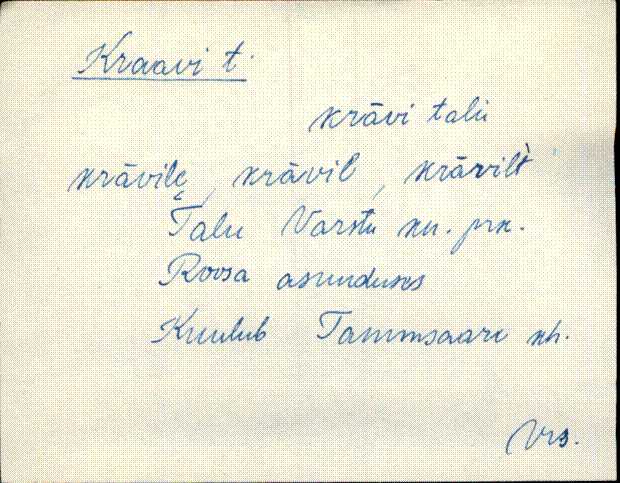 Kraavi t.
krāvi talu
krāvilę, krāvil, krāvilt̀
Talu Varstu kn. prk.
Roosa asunduses
Kuulub Tammsaare kh.
Vrs.